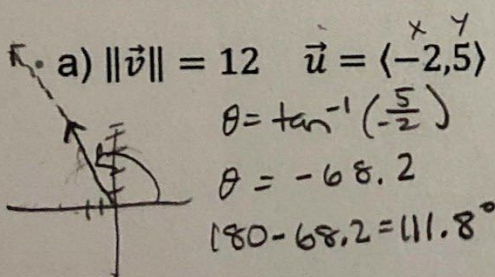 x y
a) ‖v⃗‖ = 12 u⃗ = ⟨−2,5⟩
θ = tan⁻¹ (5/-2)
θ = -68.2
180-68.2=111.8°